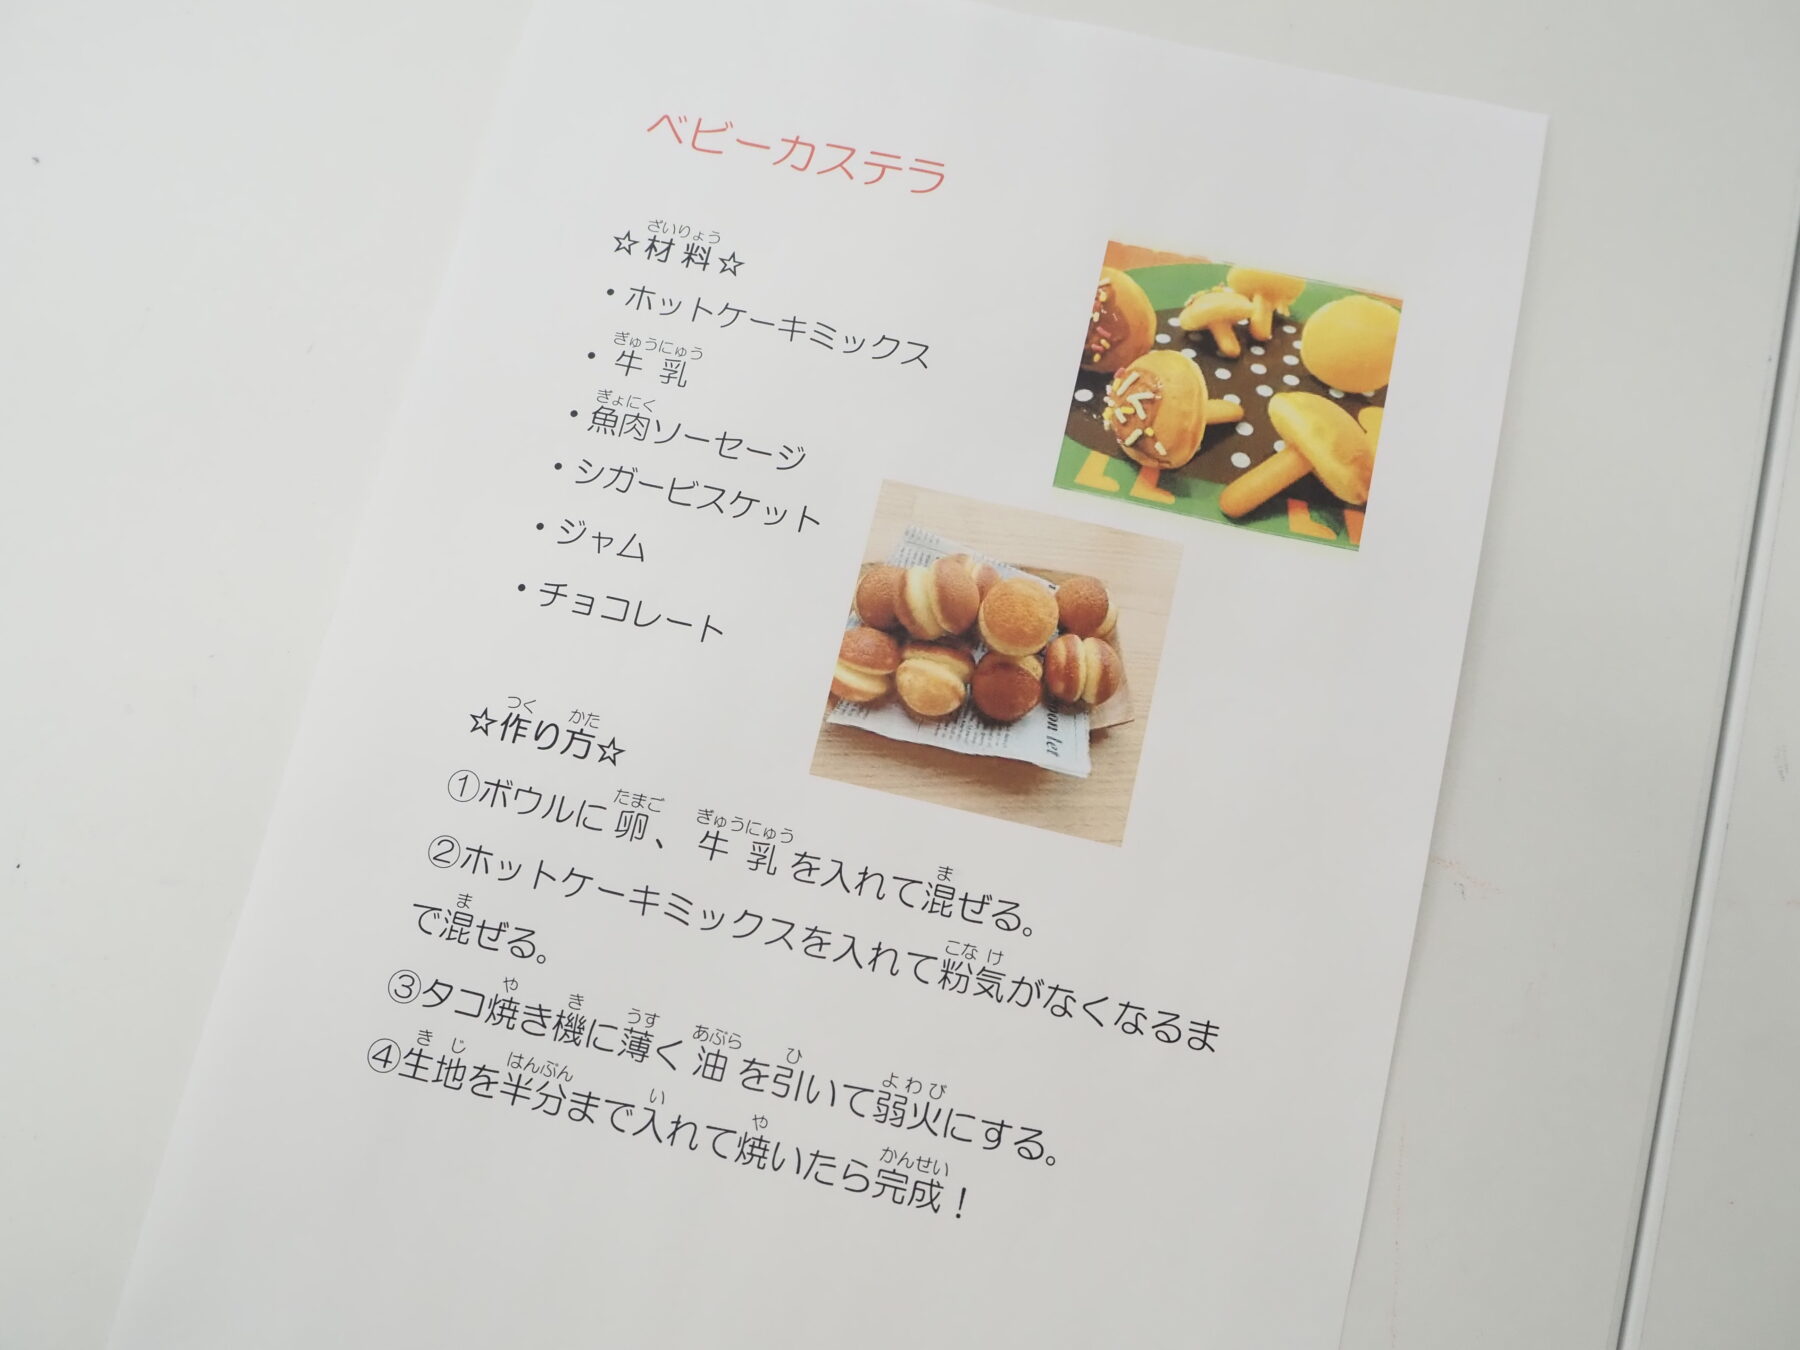 ベビーカステラ
☆材料☆
・ホットケーキミックス
・牛乳
・魚肉ソーセージ
・シガービスケット
・ジャム
・チョコレート
☆作り方☆
①ボウルに卵、牛乳を入れて混ぜる。
②ホットケーキミックスを入れて粉気がなくなるま
で混ぜる。
③タコ焼き機に薄く油を引いて弱火にする。
④生地を半分まで入れて焼いたら完成！